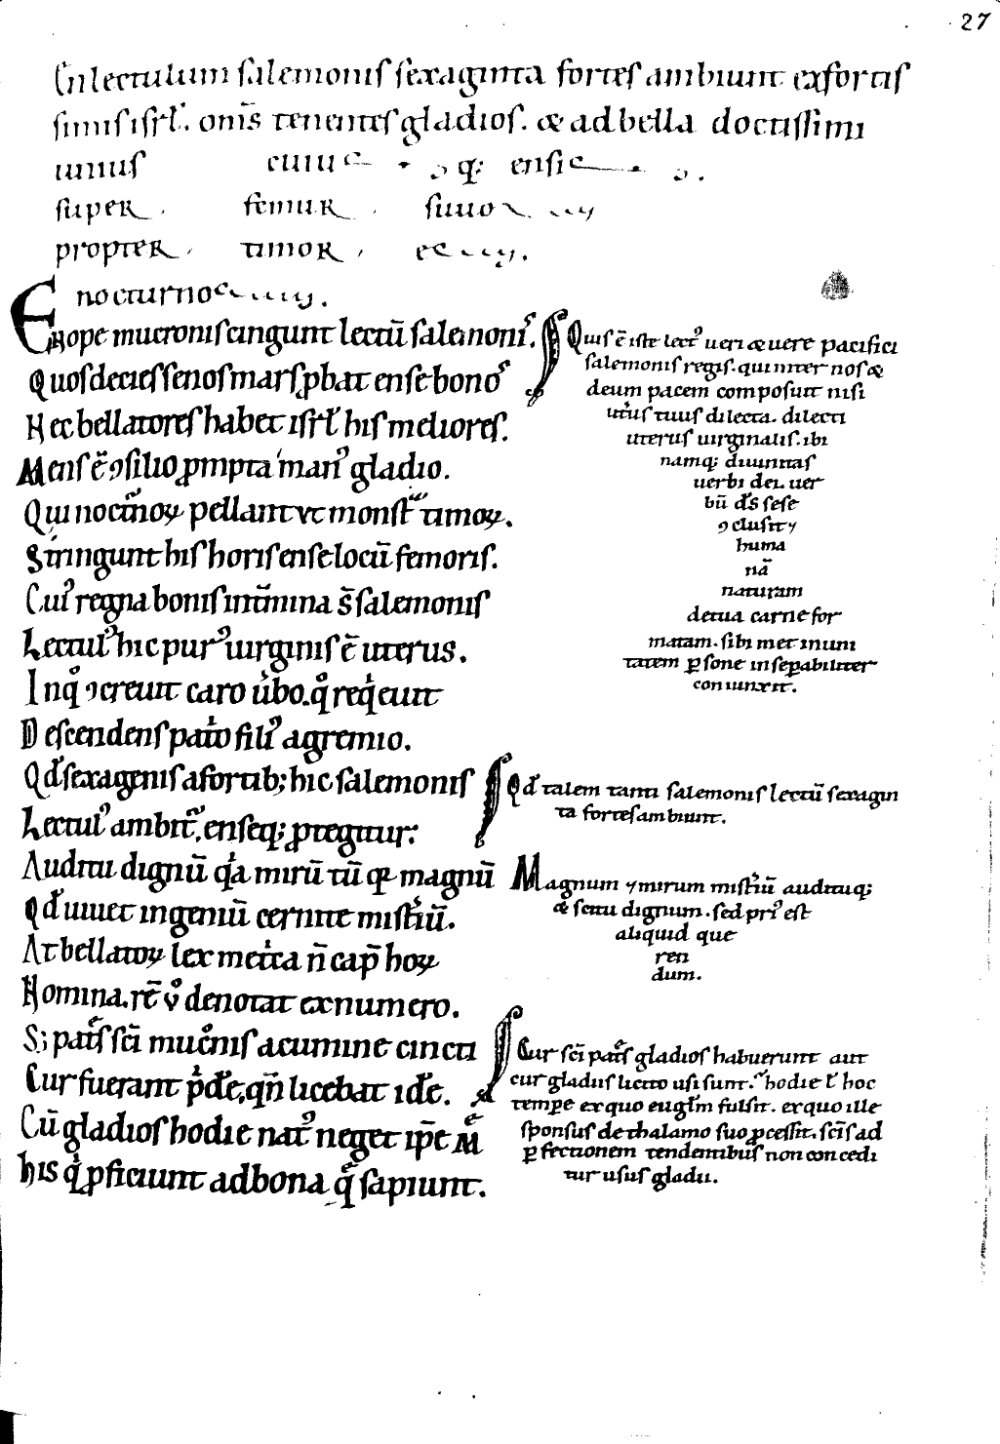 27
En lectulum salemonis sexaginta fortes ambiunt ex fortis
simis isrł. om̅s tenentes gladios. & ad bella doctissimi
unius cuiuc ꝗ: ensic
super femur suuo
propter timor ec
nocturnoc
Enope mucronis cingunt lectu̅ salemonis.
Quos decies senos mars ꝓbat ense bonos
Hec bellatores habet isrł his meliores.
Mens e̅ ꝯsilio ꝓmpta manꝰ gladio.
Qui nocturnoꝝ pellant ut monstra timoꝝ.
Stringunt his horis ense locu̅ femoris.
Cuiꝰ regna bonis int̅mina s̅ salemonis
Lectulꝰ hic purꝰ uirginis e̅ uterus.
Inqͦ ꝯcreuit caro u̅bo. qͦ reqͥeuit
Descendens patͥo filiꝰ agremio.
Qd̅ sexagenis afortib; hic salemonis
Lectulꝰ ambitͬ, enseq; ꝓtegitur:
Auditu dignu̅ qͥa miru̅ tu̅ qꝫ magnu̅
Qd̅ uiuet ingeniu̅ cernite mistͥiu̅.
At bellatoꝝ lex metͥca n̅ cap̅ hoꝝ
Nomina. re̅ vͦ denotat ex numero.
Si patͬs sc̅i muc̅nis acumine cincti
Cur fuerant pͥd̅e, qn̅ licebat id̅e.
Cu̅ gladios hodie natꝰ neget ip̅e Mͤ
his qͥ ꝓficiunt ad bona qͤ sapiunt.
Quis e̅ iste lectꝰ ueri & uere pacifici
salemonis regis. qui inter nos &
deum pacem composuit nisi
utͬus tuus dilecta. dilecti
uterus uirginalis. ibi
namq; diuinitas
uerbi dei. uer
bu̅ d̅s sese
ꝯclusit ⁊
huma
na̅
naturam
detua carne for
matam. sibi met inuni
tatem ꝑsone inseꝑabiliter
coniunxit.
Qd̅ talem tanti salemonis lectu̅ sexagin
ta fortes ambiunt.
Magnum ⁊ mirum mistͥiu̅ audituq;
& scitu dignum. sed priꝰ est
aliquid que
ren
dum.
Cur sc̅i patͬs gladios habuerunt aut
cur gladiis licito usi sunt. Si hodie ł hoc
tempꝑe ex quo eugl̅m fulsit. ex quo ille
sponsus de thalamo suo ꝓcessit. sc̅is ad
ꝑfectionem tendentibus non concedi
tur usus gladii.